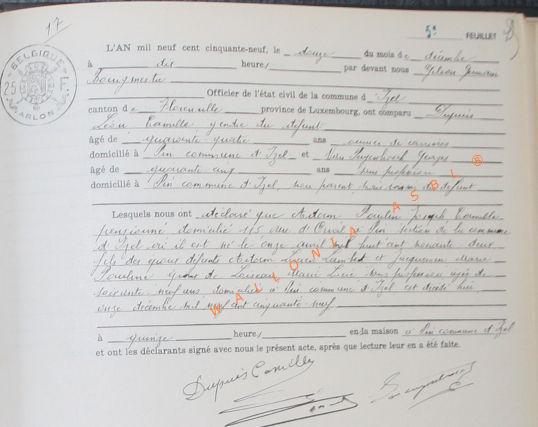 17
5e FEUILLET
BELGIQUE
ARLON
L'AN mil neuf cent cinquante-neuf, le douze du mois de décembre
à dix heures, par devant nous
Bourgmestre
Officier de l'état civil de la commune d'Izel
canton de Florenville province de Luxembourg, ont comparu Dupuis
Léon Camille, gendre du défunt
âgé de quarante quatre ans ouvrier de carrières
domicilié à Pin commune d'Izel et Georges
âgé de quarante cinq ans sans profession
domicilié à Pin commune d'Izel, non parent, mais connu du défunt
Lesquels nous ont déclaré que Paulin Joseph Camille
pensionné domicilié 115 rue d'Orval à Pin section de la commune
d'Izel, où il est né le onze avril mil huit cent nonante deux
fils des époux défunts Lambert et Jacquemin Marie
Pauline, époux de Marie sans profession âgée de
soixante-neuf ans domiciliée à Pin commune d'Izel est décédé hier
onze décembre mil neuf cent cinquante-neuf
à quinze heures, en la maison à Pin commune d'Izel
et ont les déclarants signé avec nous le présent acte, après que lecture leur en a été faite.
Dupuis Camille
WALLONIA ASBL ®